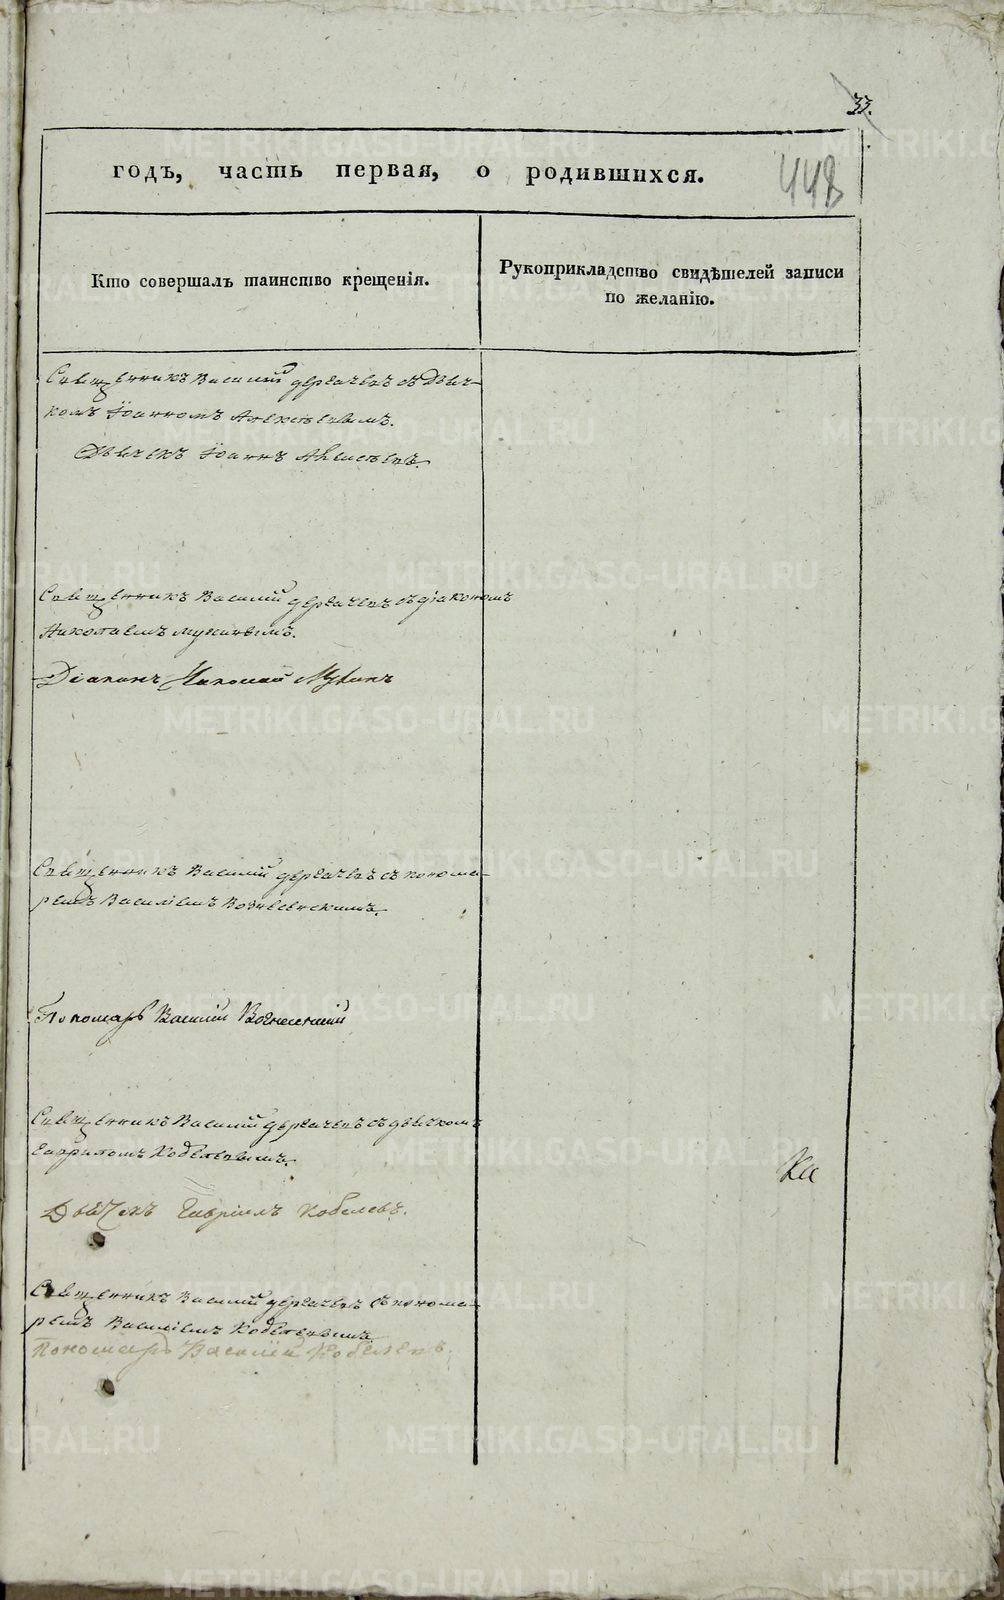 33.
годъ, часть первая, о родившихся.
448
Кто совершалъ таинство крещенія.
Рукоприкладство свидѣтелей записи
по желанію.
Священникъ Василій Дергачевъ съ Дьяч-
комъ Іоанномъ Алексѣевымъ.
Дьячекъ Іоаннъ Алексѣевъ.
Священникъ Василій Дергачевъ съ діакономъ
Николаемъ Мухинымъ.
Діаконъ Николай Мухинъ
Священникъ Василій Дергачевъ съ понома-
ремъ Василіемъ Вознесенскимъ.
Пономарь Василій Вознесенскій
Священникъ Василій Дергачевъ съ дьячкомъ
Гавриломъ Кобелевымъ.
Дьячекъ Гавріилъ Кобелевъ.
Священникъ Василій Дергачевъ съ понома-
ремъ Василіемъ Кобелевымъ
Пономарь Василій Кобелевъ.
METRIKI.GASO-URAL.RU